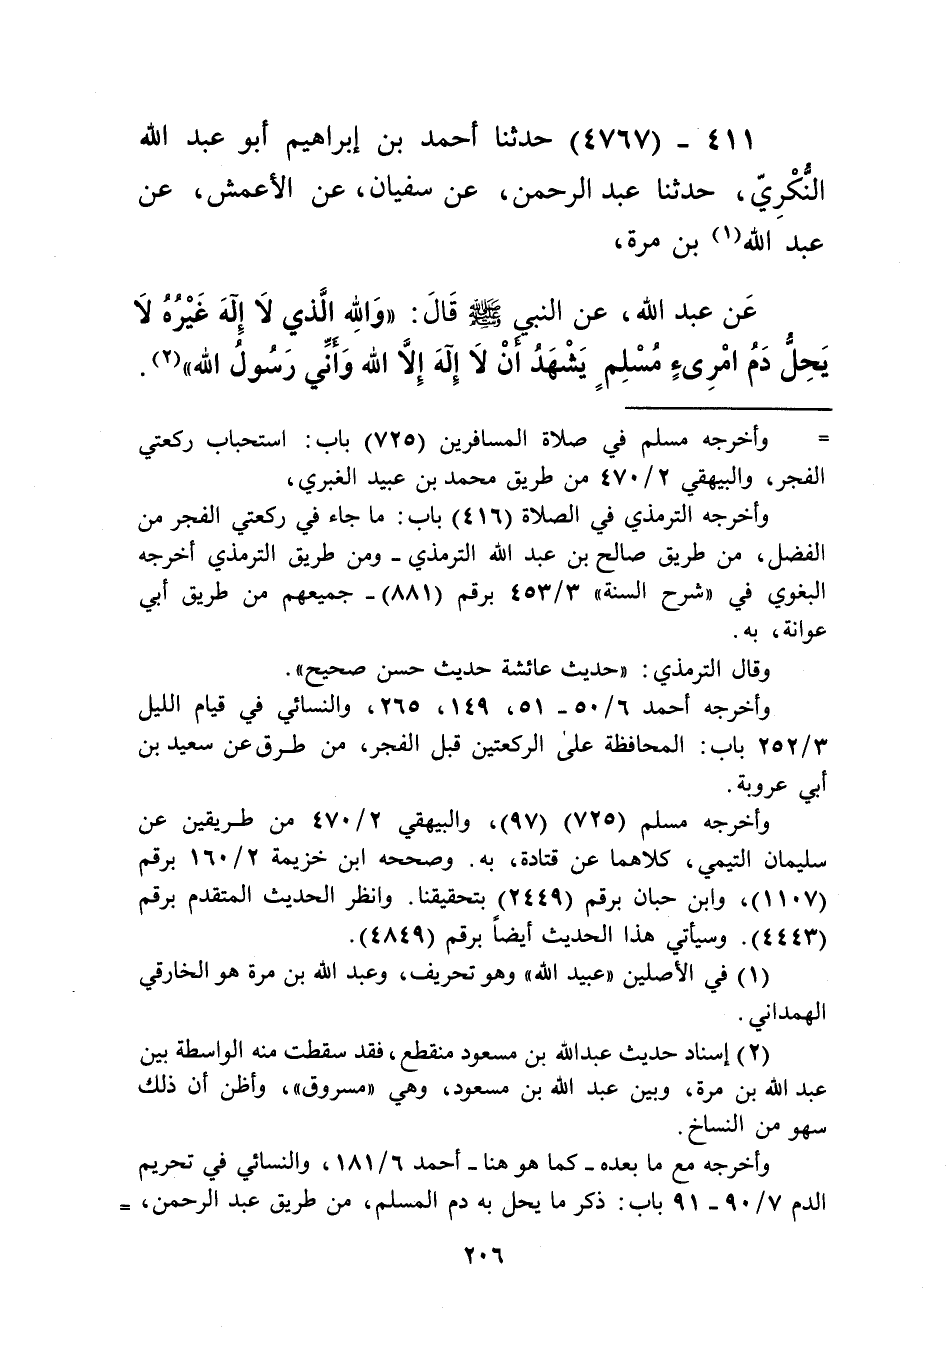 ٤١١ - (٤٧٦٧) حدثنا أحمد بن إبراهيم أبو عبد الله
النُّكْرِيّ، حدثنا عبد الرحمن، عن سفيان، عن الأعمش، عن
عبد الله(١) بن مرة،
عَن عبد الله، عن النبي ﷺ قَالَ: «وَاللهِ الَّذي لَا إِلَهَ غَيْرُهُ لَا
يَحِلُّ دَمُ امْرِىءٍ مُسْلِمٍ يَشْهَدُ أَنْ لَا إِلَهَ إِلَّا الله وَأَنِّي رَسُولُ الله»(٢).
= وأخرجه مسلم في صلاة المسافرين (٧٢٥) باب: استحباب ركعتي
الفجر، والبيهقي ٤٧٠/٢ من طريق محمد بن عبيد الغبري،
وأخرجه الترمذي في الصلاة (٤١٦) باب: ما جاء في ركعتي الفجر من
الفضل، من طريق صالح بن عبد الله الترمذي - ومن طريق الترمذي أخرجه
البغوي في «شرح السنة» ٤٥٣/٣ برقم (٨٨١) - جميعهم من طريق أبي
عوانة، به.
وقال الترمذي: «حديث عائشة حديث حسن صحيح».
وأخرجه أحمد ٥٠/٦ - ٥١، ١٤٩، ٢٦٥، والنسائي في قيام الليل
٢٥٢/٣ باب: المحافظة على الركعتين قبل الفجر، من طرق عن سعيد بن
أبي عروبة.
وأخرجه مسلم (٧٢٥) (٩٧)، والبيهقي ٤٧٠/٢ من طريقين عن
سليمان التيمي، كلاهما عن قتادة، به. وصححه ابن خزيمة ١٦٠/٢ برقم
(١١٠٧)، وابن حبان برقم (٢٤٤٩) بتحقيقنا. وانظر الحديث المتقدم برقم
(٤٤٤٣). وسيأتي هذا الحديث أيضاً برقم (٤٨٤٩).
(١) في الأصلين «عبيد الله» وهو تحريف، وعبد الله بن مرة هو الخارقي
الهمداني.
(٢) إسناد حديث عبدالله بن مسعود منقطع، فقد سقطت منه الواسطة بين
عبد الله بن مرة، وبين عبد الله بن مسعود، وهي «مسروق»، وأظن أن ذلك
سهو من النساخ.
وأخرجه مع ما بعده - كما هو هنا - أحمد ١٨١/٦، والنسائي في تحريم
الدم ٩٠/٧ - ٩١ باب: ذكر ما يحل به دم المسلم، من طريق عبد الرحمن، =
٢٠٦